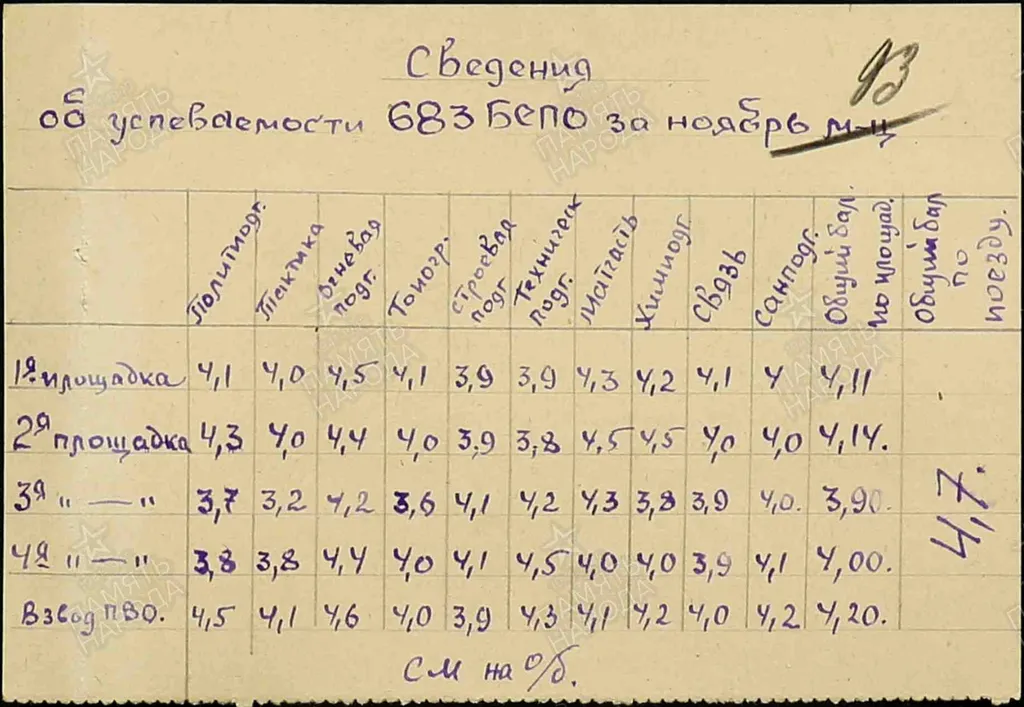 93
Сведения
об успеваемости 683 БЕПО за ноябрь м-ц
Политподг. Тактика Огневая подг. Топогр. Строевая подг. Техническ подг. Матчасть Химподг. Связь Санподг. Общий бал по площад. Общий бал по поезду.
1я площадка 4,1 4,0 4,5 4,1 3,9 3,9 4,3 4,2 4,1 4 4,11
2я площадка 4,3 4,0 4,4 4,0 3,9 3,8 4,5 4,5 4,0 4,0 4,14.
3я " — " 3,7 3,2 4,2 3,6 4,1 4,2 4,3 3,8 3,9 4,0. 3,90.
4,7.
4я " — " 3,8 3,8 4,4 4,0 4,1 4,5 4,0 4,0 3,9 4,1 4,00.
Взвод ПВО. 4,5 4,1 4,6 4,0 3,9 4,3 4,1 4,2 4,0 4,2 4,20.
см на о/б.
ПАМЯТЬ НАРОДА